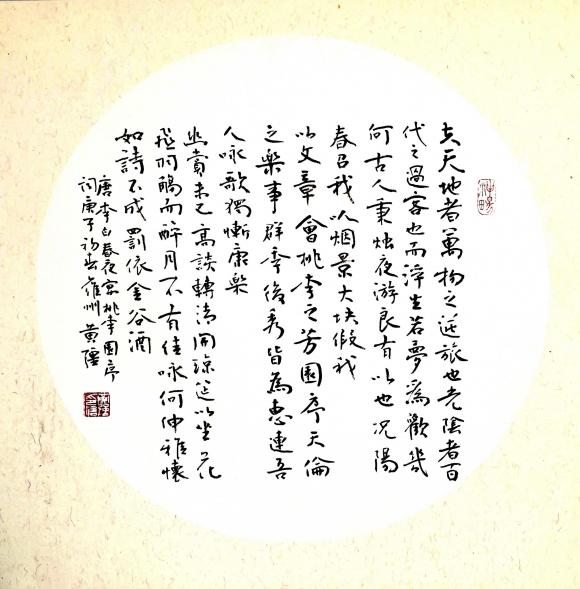 夫天地者萬物之逆旅也光陰者百
代之過客也而浮生若夢爲歡幾
何古人秉烛夜游良有以也况陽
春召我以烟景大塊假我
以文章會桃李之芳園序天倫
之樂事群季俊秀皆為惠連吾
人咏歌獨慚康樂
幽賞未已高談轉清開瓊筵以坐花
飛羽觴而醉月不有佳咏何伸雅懷
如詩不成罰依金谷酒
唐李白春夜宴桃李園序
词庚子初春雍州黄